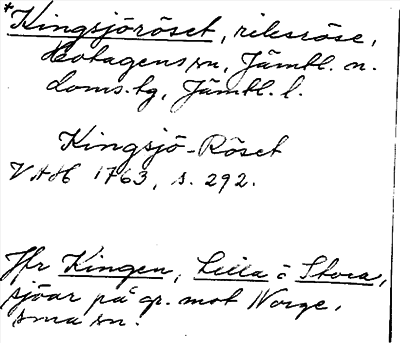 *Kingsjöröset, riksröse,
Hotagens sn, Jämtl. n.
doms.tg, Jämtl. l.
Kingsjö-Röset
VAH 1763, s. 292.
Jfr Kingen, Lilla o Stora,
sjöar på gr. mot Norge,
sma sn.